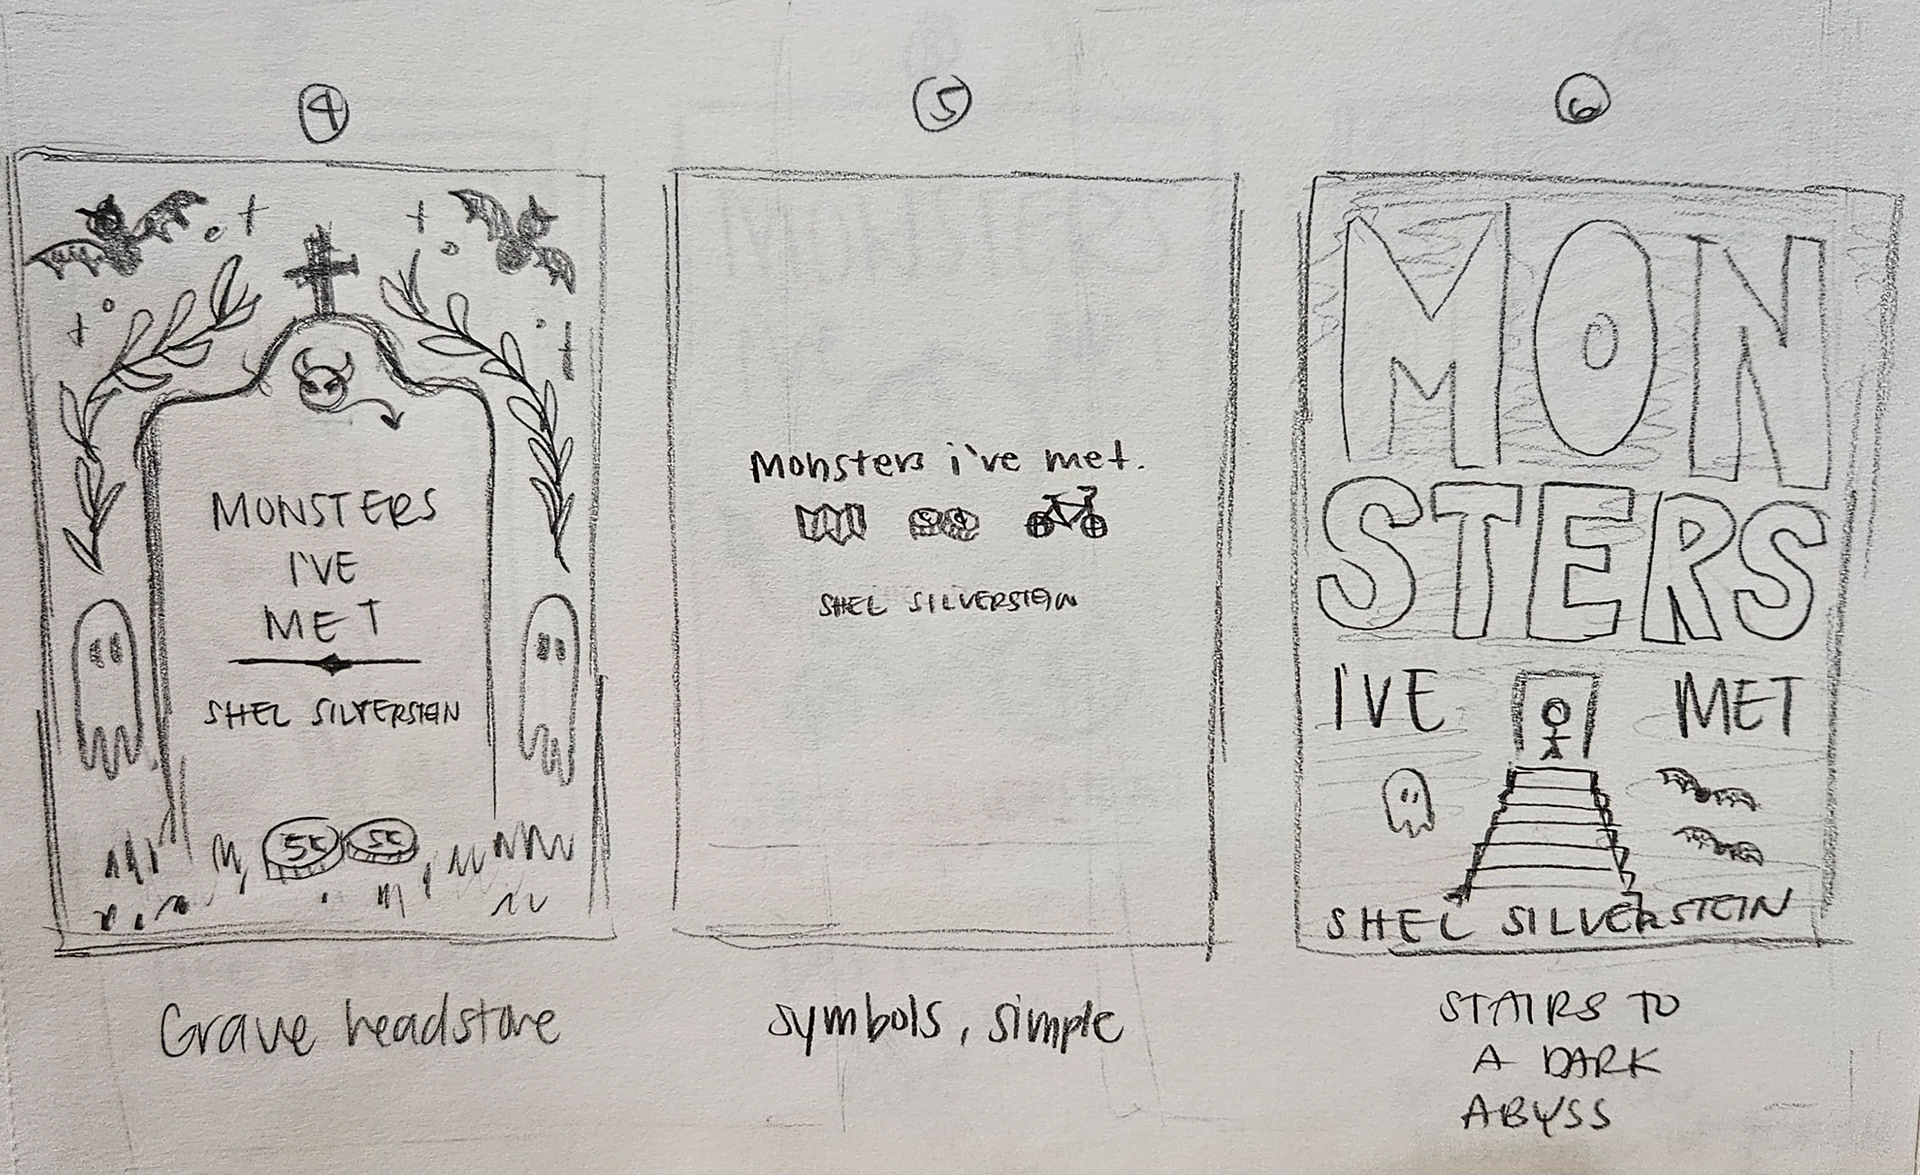 4
MONSTERS
I'VE
MET
SHEL SILVERSTEIN
5¢ 5¢
Grave headstone
5
Monsters i've met.
SHEL SILVERSTEIN
symbols, simple
6
MON
STERS
I'VE MET
SHEL SILVERSTEIN
STAIRS TO
A DARK
ABYSS